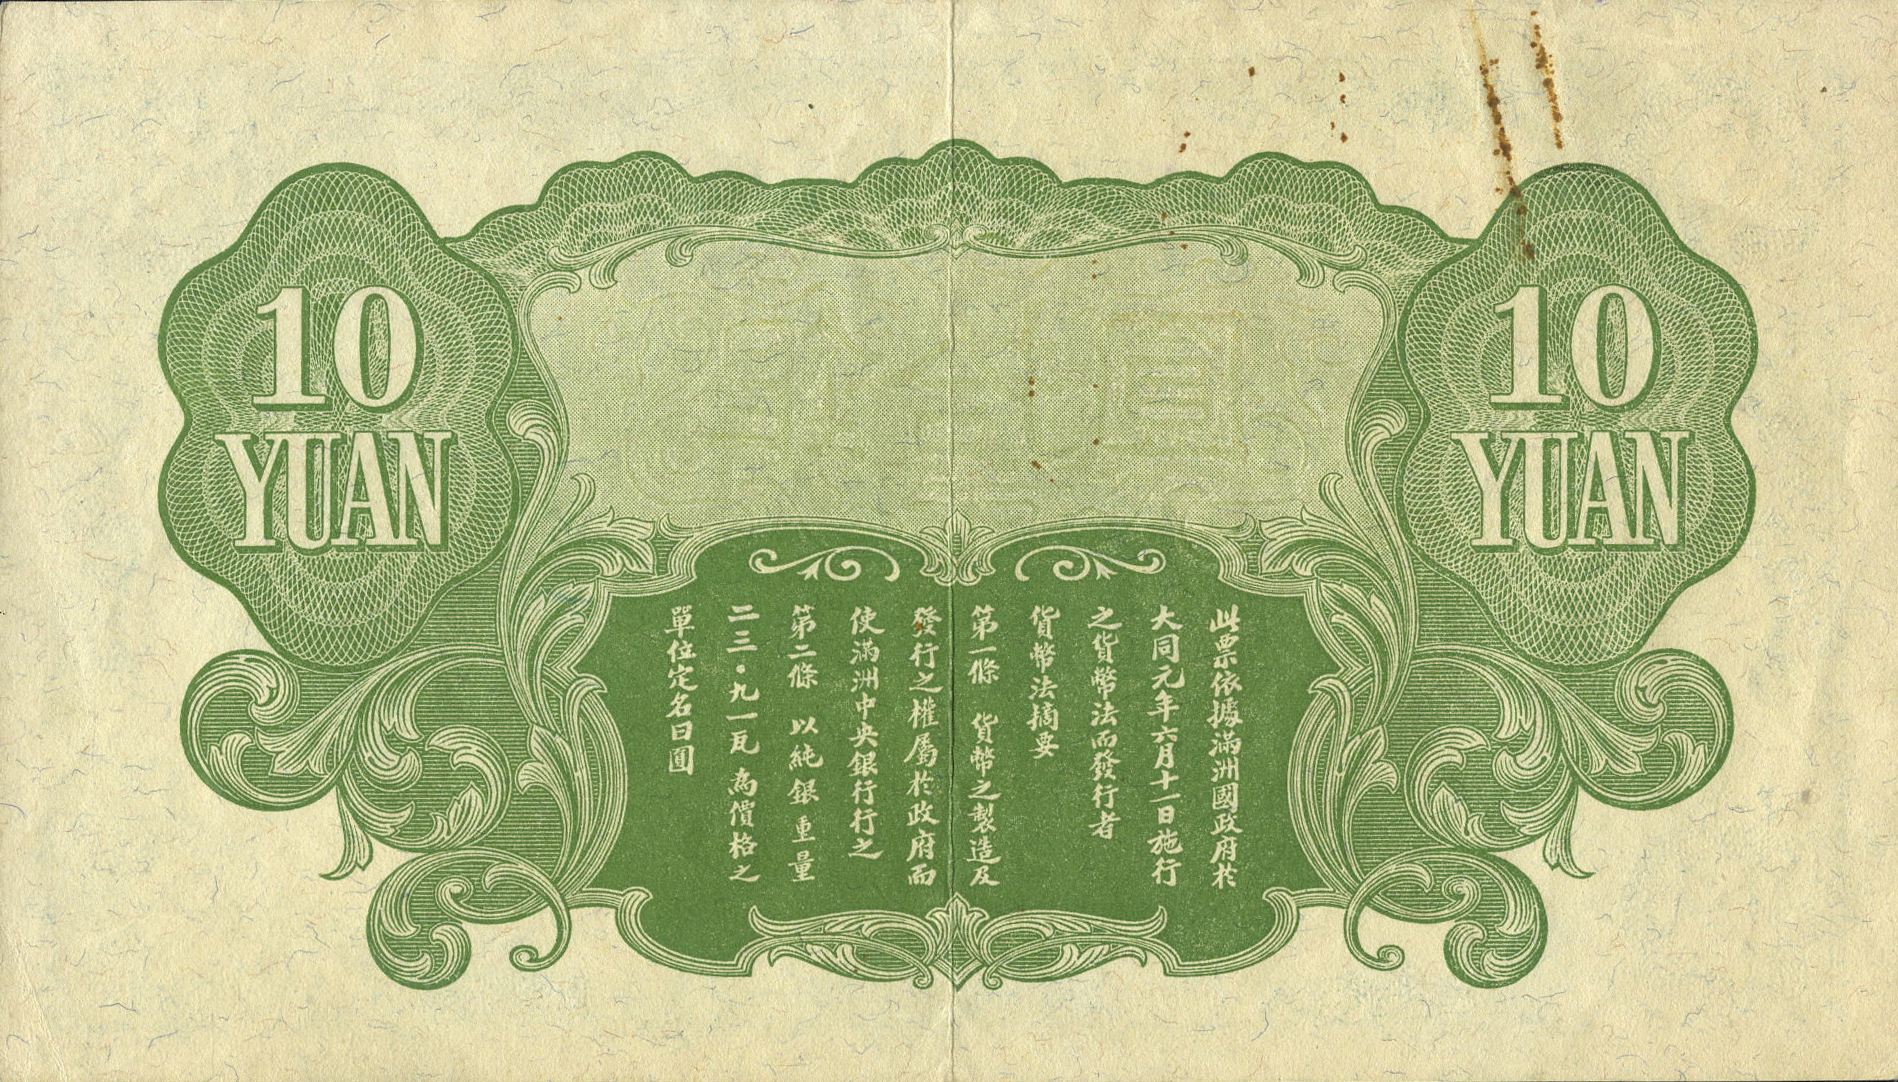 10
YUAN
10
YUAN
此票依據滿洲國政府於
大同元年六月十一日施行
之貨幣法而發行者
貨幣法摘要
第一條 貨幣之製造及
發行之權屬於政府而
使滿洲中央銀行行之
第二條 以純銀重量
二三·九一瓦為價格之
單位定名曰圓